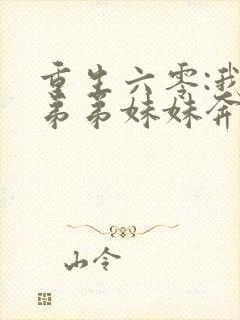 重生六零:我
弟弟妹妹奔
山令